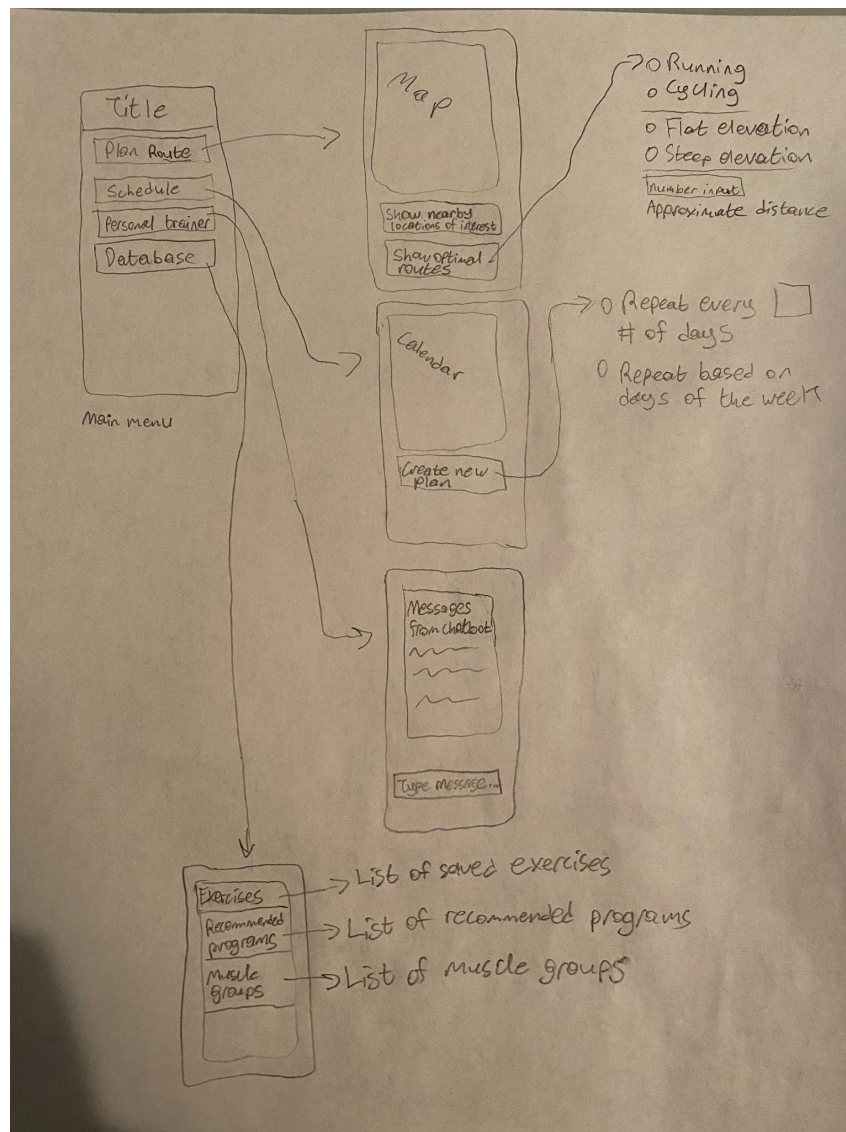 Title
Plan Route
Schedule
Personal trainer
Database
Main menu
Map
Show nearby
locations of interest
Show optimal
routes
Running
Cycling
Flat elevation
Steep elevation
number input
Approximate distance
Calendar
Create new
plan
Repeat every
# of days
Repeat based on
days of the week
Messages
from chatbot
Type message...
Exercises
Recommended
programs
Muscle
groups
List of saved exercises
List of recommended programs
List of muscle groups